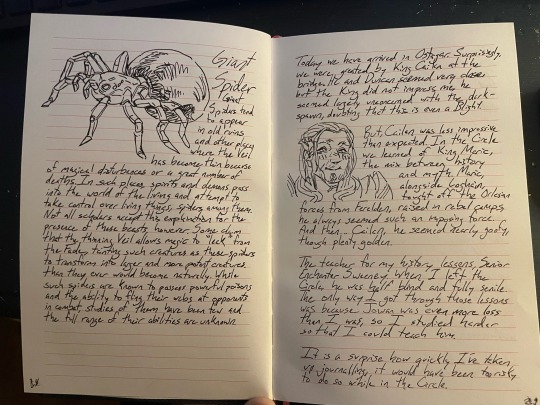 Giant
Spider
Giant
Spiders tend
to appear
in old ruins
and other places
where the Veil
has become thin because
of magical disturbances or a great number of
deaths. In such places, spirits and demons pass
into the world of the living and attempt to
take control over living things, spiders among them.
Not all scholars accept this explanation for the
presence of these beasts, however. Some claim
that the thinning Veil allows magic to "leak" from
the Fade, tainting such creatures as these spiders
to transform into larger and more potent creatures
than they ever would become naturally. While
such spiders are known to possess powerful poisons
and the ability to fling their webs at opponents
in combat, studies of them have been few and
the full range of their abilities are unknown
Today we have arrived in Ostagar. Surprisingly,
we were greeted by King Cailan at the
bridge. He and Duncan seemed very close
but the King did not impress me, he
seemed largely unconcerned with the dark-
spawn, doubting that this is even a Blight.
But, Cailan was less impressive
than expected. In the Circle
we learned of King Maric,
the mix between history
and myth. Maric,
alongside Loghain,
fought off the Orlesian
forces from Ferelden, raised in rebel camps,
he always seemed such an imposing force.
And then... Cailan, he seemed nearly goofy,
though plenty golden.
The teacher for my history lessons, Senior
Enchanter Sweeney. When I left the
Circle, he was half blind and fully senile.
The only way I got through those lessons
was because Jowan was even more lost
than I was, so I studied harder
so that I could teach him.
It is a surprise how quickly I've taken
up journalling, it would have been too risky
to do so while in the Circle.